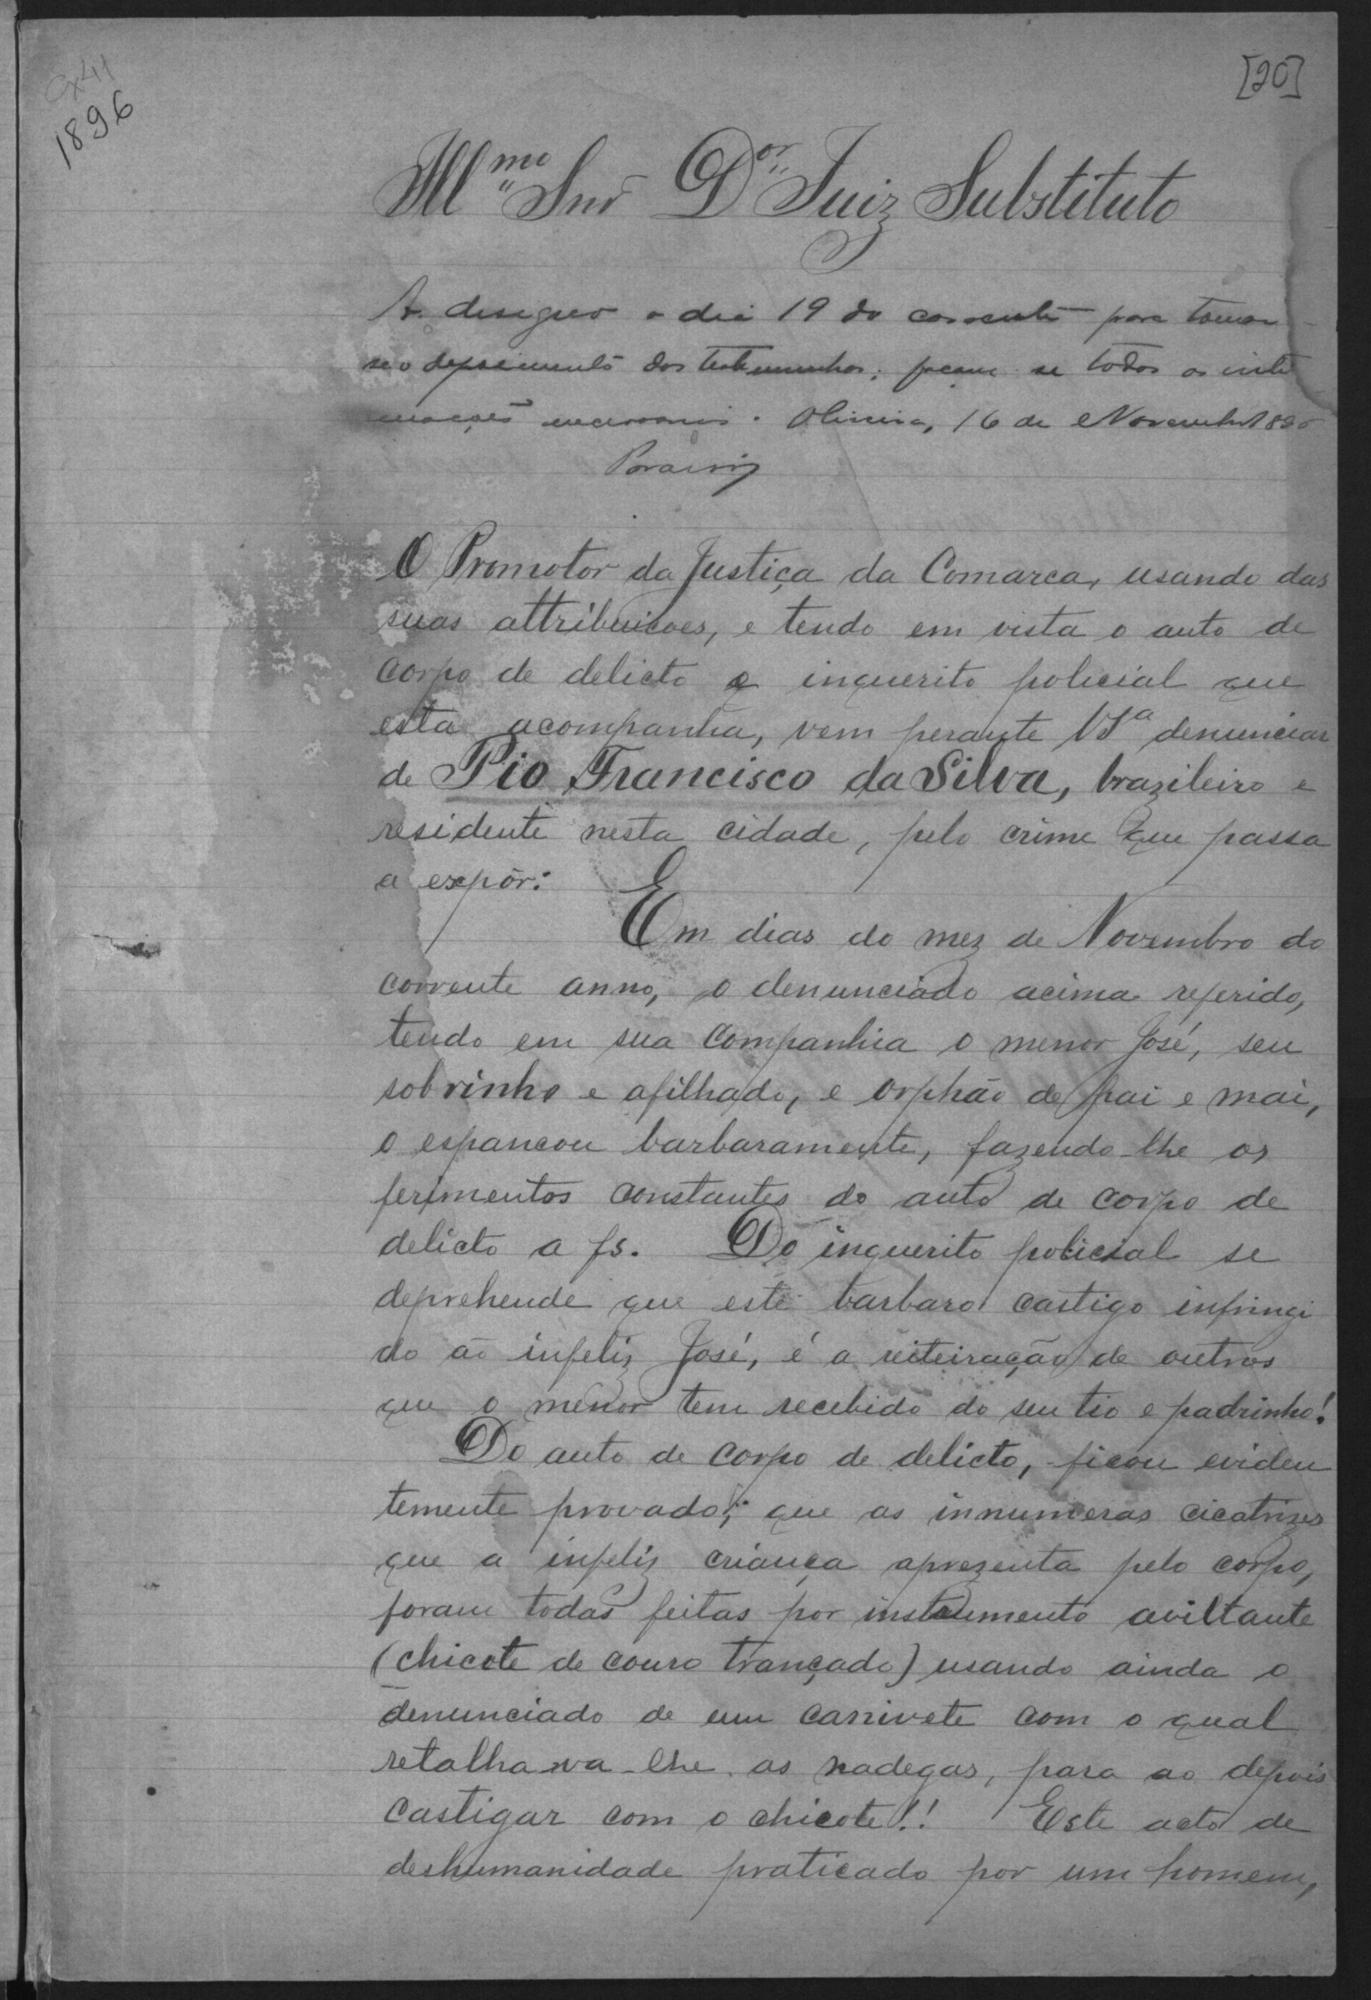 Cx 41
1896
[20]
Illmo Snr Dor Juiz Substituto
A. designo o dia 19 do corrente para tomar
se o depoimento das testemunhas; façam se todas as inti
mações necessarias. Oliveira, 16 de Novembro 1896
O Promotor da Justiça da Comarca, usando das
suas attribuicoes, e tendo em vista o auto de
corpo de delicto e inquerito policial que
esta acompanha, vem perante VSª denunciar
de Pio Francisco da Silva, brazileiro e
residente nesta cidade, pelo crime que passa
a expôr:
Em dias do mez de Novembro do
corrente anno, o denunciado acima referido,
tendo em sua companhia o menor José, seu
sobrinho e afilhado, e orphão de pai e mai,
o espancou barbaramente, fazendo-lhe os
ferimentos constantes do auto de corpo de
delicto a fs. Do inquerito policial se
deprehende que este barbaro castigo infringi
do ao infeliz José, é a reiteiração de outros
que o menor tem recebido do seu tio e padrinho!
Do auto de corpo de delicto, ficou eviden
temente provado; que as innumeras cicatrizes
que a infeliz criança aprezenta pelo corpo,
foram todas feitas por instrumento aviltante
(chicote de couro trançado) usando ainda o
denunciado de um canivete com o qual
retalhava-lhe as nadegas, para ao depois
castigar com o chicote!! Este acto de
deshumanidade praticado por um homem,